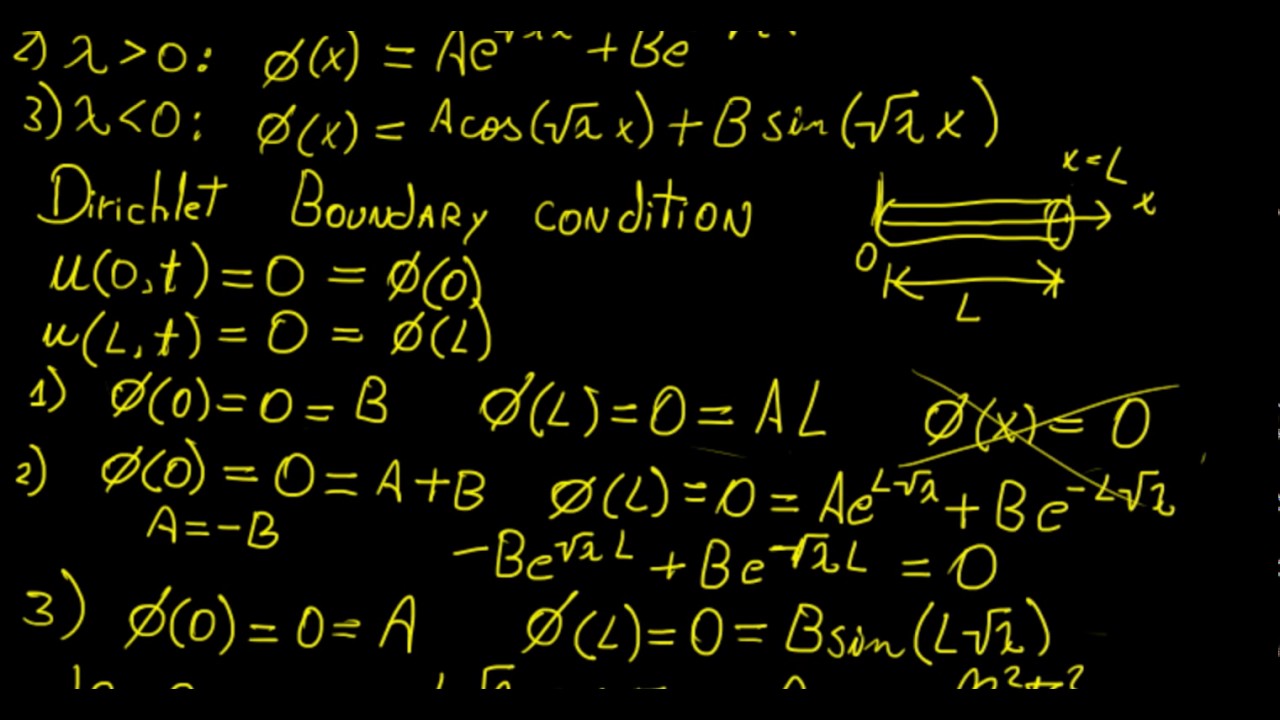 2) λ>0: ø(x) = Ae^√λx + Be
3) λ<0: ø(x) = Acos(√λ x) + B sin(√λ x)
x=L
Dirichlet Boundary condition
x
0
L
u(0,t) = 0 = ø(0)
u(L,t) = 0 = ø(L)
1) ø(0)=0=B ø(L)=0=AL ø(x)=0
2) ø(0)=0=A+B ø(L)=0=Ae^L√λ + Be^-L√λ
A=-B
-Be^√λL + Be^-√λL = 0
3) ø(0)=0=A ø(L)=0=Bsin(L√λ)